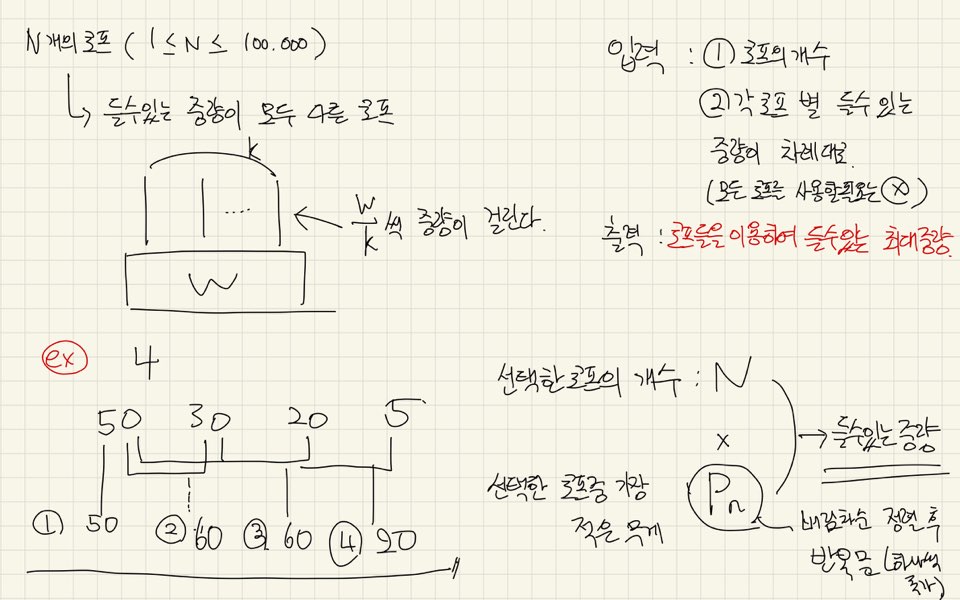 N개의 로프 ( 1 ≤ N ≤ 100.000 )
↳ 들수있는 중량이 모두 다를 로프
k
....
W
W/k 씩 중량이 걸린다.
입력 : ① 로프의 개수
② 각 로프 별 들수 있는
중량이 차례대로.
(모든 로프를 사용할필요는 ⓧ)
출력 : 로프들을 이용하여 들수있는 최대중량.
ex 4
50 30 20 5
① 50 ② 60 ③ 60 ④ 20
선택한 로프의 개수 : N
x
→ 들수있는 중량
선택한 로프중 가장
적은 무게
Pn
내림차순 정렬 후
반복문 (하나씩
추가)